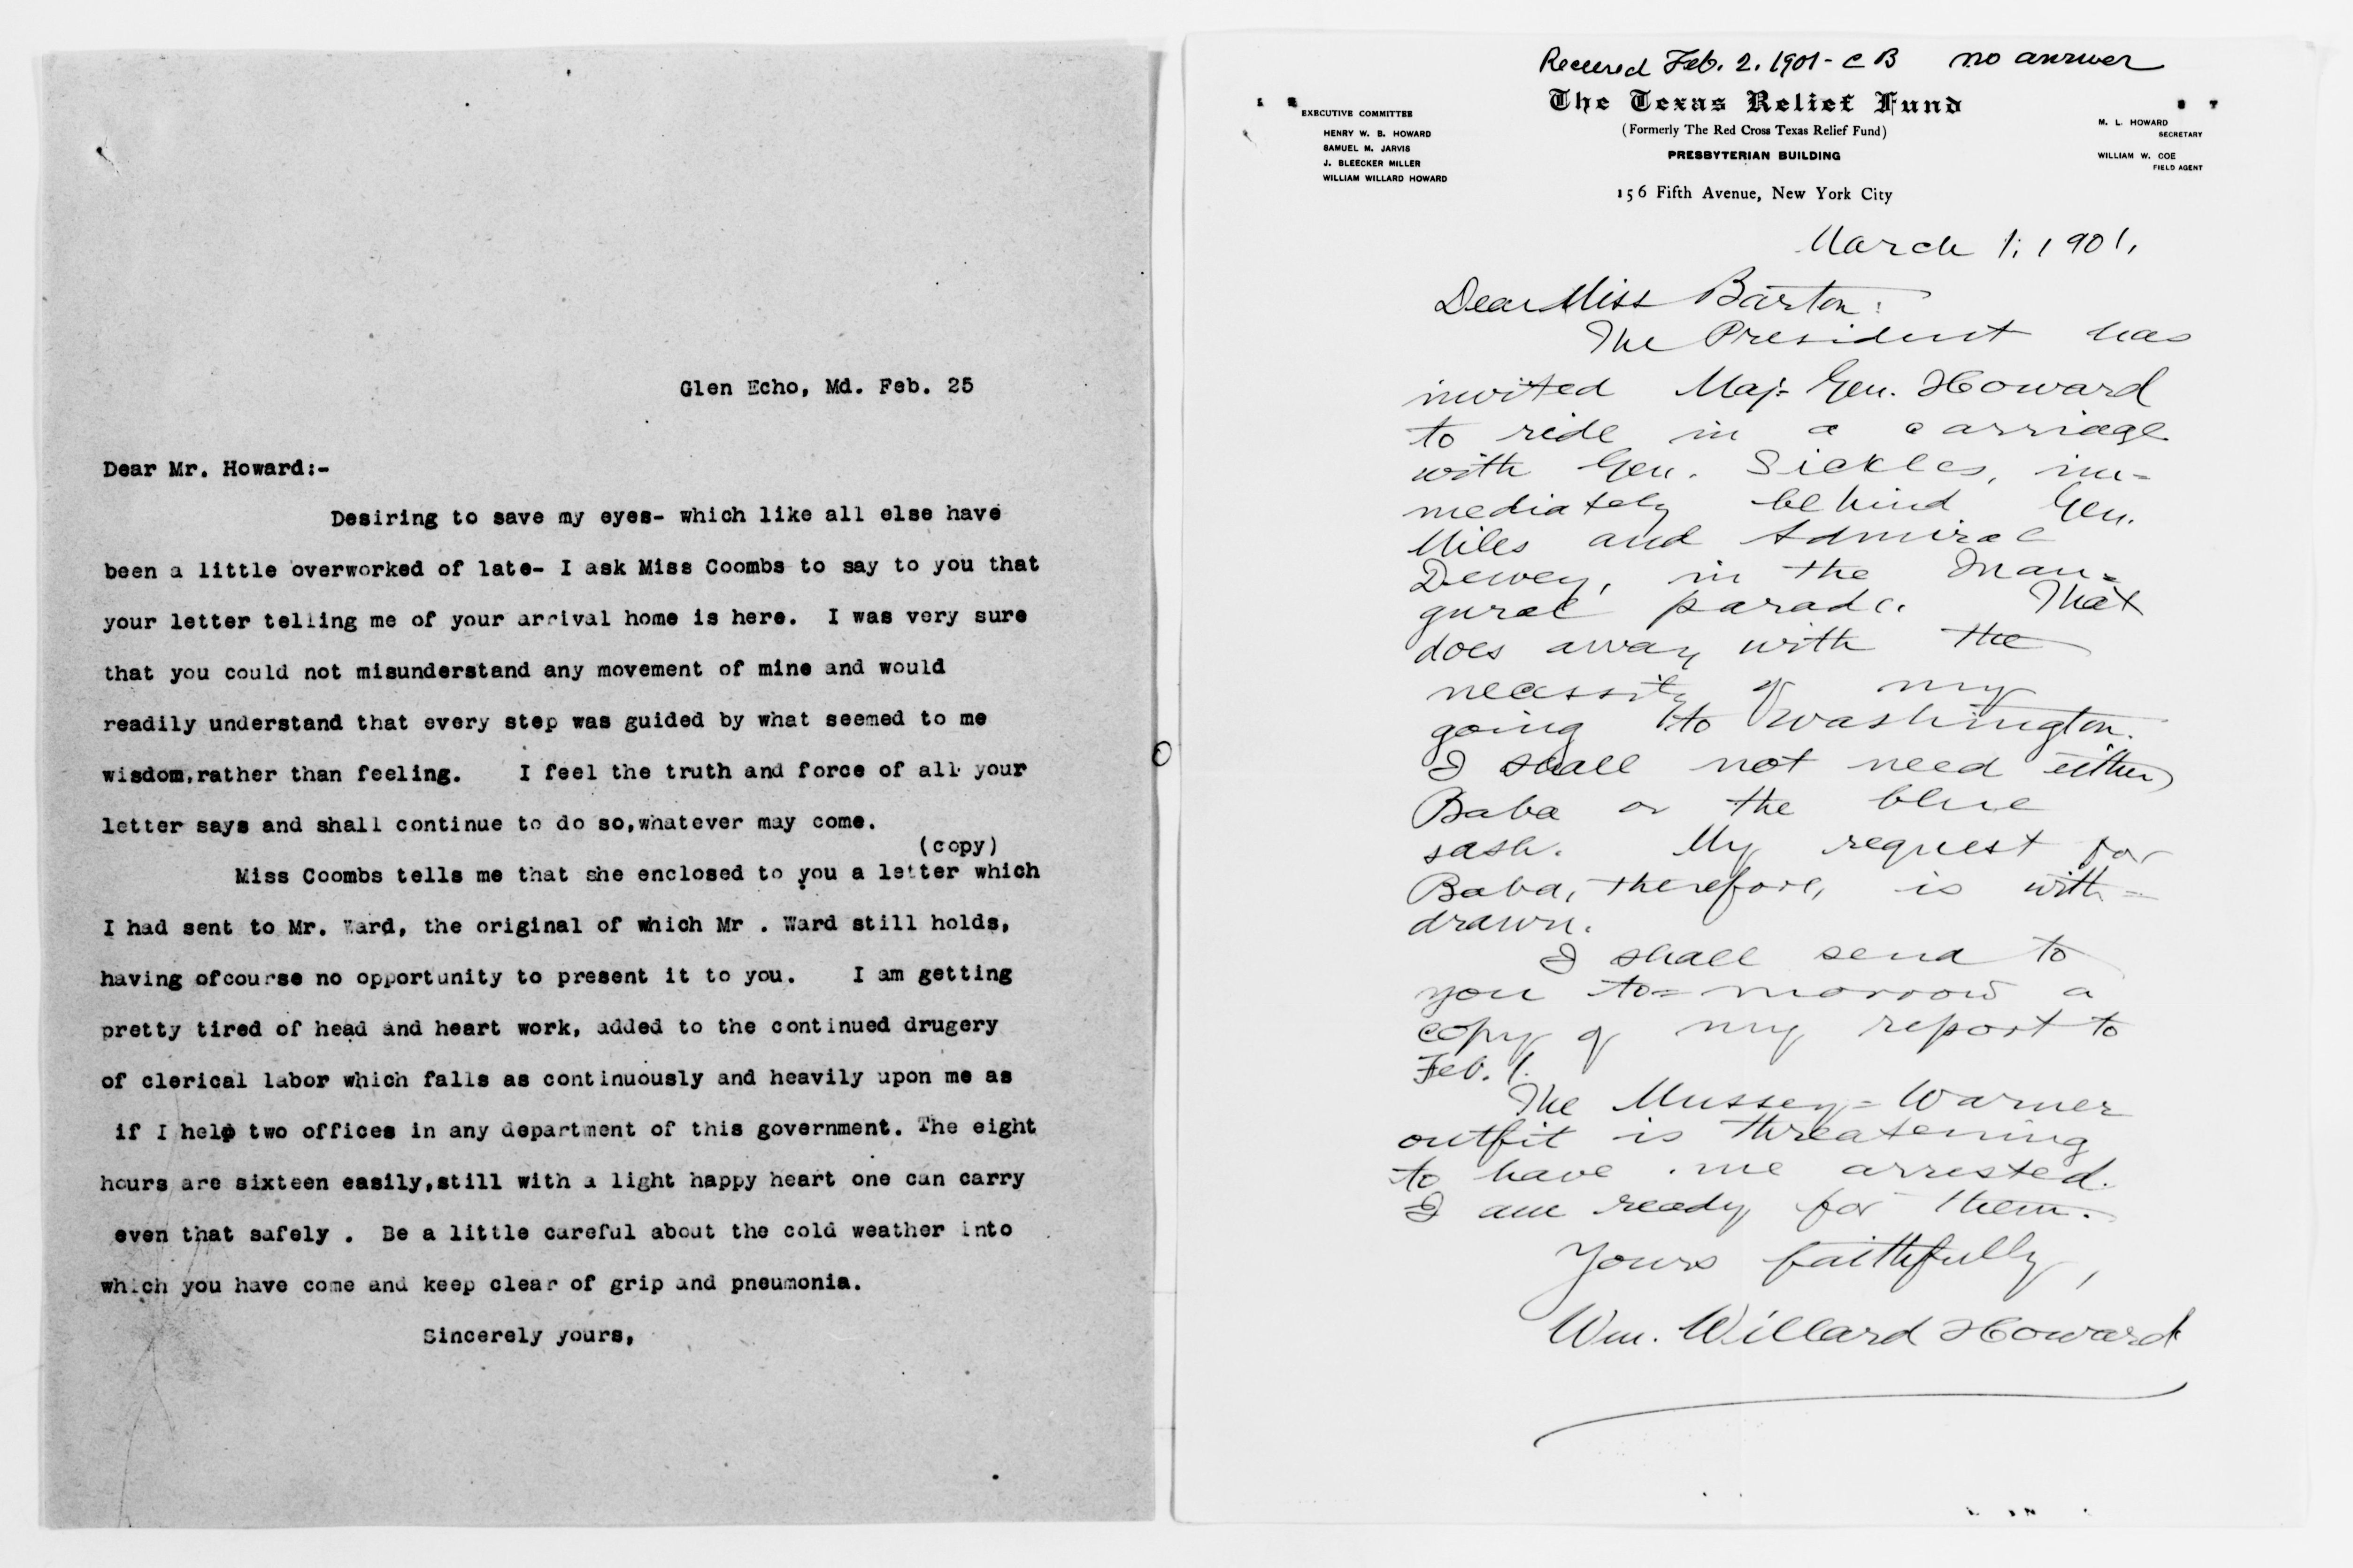 Glen Echo, Md. Feb. 25
Dear Mr. Howard:-
Desiring to save my eyes- which like all else have
been a little overworked of late- I ask Miss Coombs to say to you that
your letter telling me of your arrival home is here. I was very sure
that you could not misunderstand any movement of mine and would
readily understand that every step was guided by what seemed to me
wisdom,rather than feeling. I feel the truth and force of all your
letter says and shall continue to do so,whatever may come.
(copy)
Miss Coombs tells me that she enclosed to you a letter which
I had sent to Mr. Ward, the original of which Mr . Ward still holds,
having ofcourse no opportunity to present it to you. I am getting
pretty tired of head and heart work, added to the continued drugery
of clerical labor which falls as continuously and heavily upon me as
if I help two offices in any department of this government. The eight
hours are sixteen easily,still with a light happy heart one can carry
even that safely . Be a little careful about the cold weather into
which you have come and keep clear of grip and pneumonia.
Sincerely yours,
Received Feb. 2. 1901 - C B no answer
The Texas Relief Fund
(Formerly The Red Cross Texas Relief Fund)
PRESBYTERIAN BUILDING
156 Fifth Avenue, New York City
EXECUTIVE COMMITTEE
HENRY W. B. HOWARD
SAMUEL M. JARVIS
J. BLEECKER MILLER
WILLIAM WILLARD HOWARD
M. L. HOWARD
SECRETARY
WILLIAM W. COE
FIELD AGENT
March 1, 1901,
Dear Miss Barton:
The President has
invited Maj. Gen. Howard
to ride in a carriage
with Gen. Sickles, im=
mediately behind Gen.
Miles and Admiral
Dewey, in the Inau=
gural parade. That
does away with the
necessity of my
going to Washington.
I shall not need either
Baba or the blue
sash. My request for
Baba, therefore, is with=
drawn.
I shall send to
you to=morrow a
copy of my report to
Feb. 1.
The Mussey=Warner
outfit is threatening
to have me arrested.
I am ready for them.
Yours faithfully,
Wm. Willard Howard